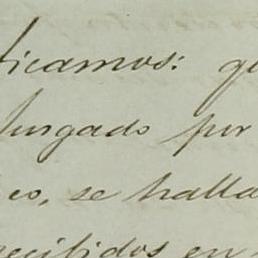 ficamos: qu
Jurgado por
eo, se halla
recibidos en